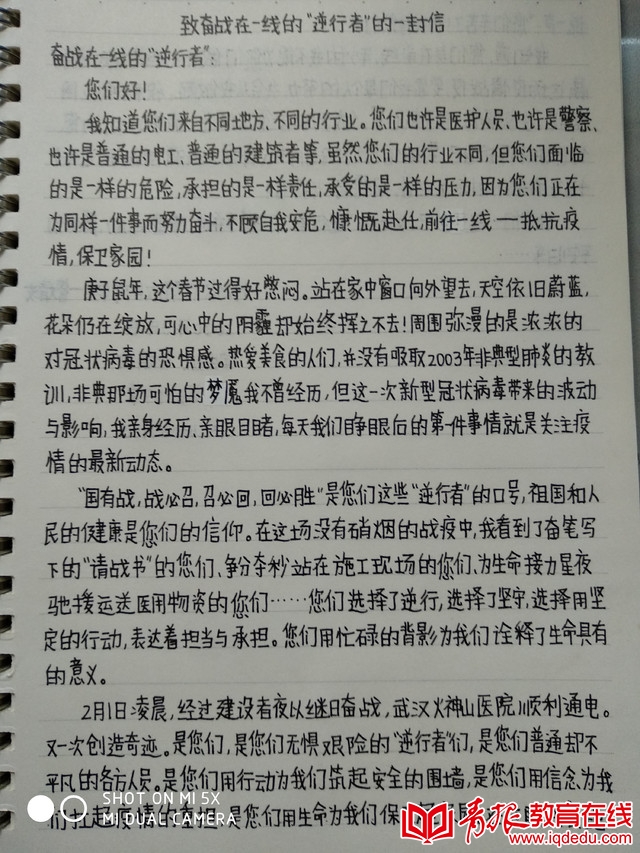 致奋战在一线的“逆行者”的一封信
奋战在一线的“逆行者”:
您们好!
我知道您们来自不同地方、不同的行业。您们也许是医护人员、也许是警察、
也许是普通的电工、普通的建筑者等,虽然您们的行业不同,但您们面临
的是一样的危险,承担的是一样责任,承受的是一样的压力,因为您们正在
为同样一件事而努力奋斗,不顾自我安危,慷慨赴任,前往一线——抵抗疫
情,保卫家园!
庚子鼠年,这个春节过得好憋闷。站在家中窗口向外望去,天空依旧蔚蓝,
花朵仍在绽放,可心中的阴霾却始终挥之不去!周围弥漫的是浓浓的
对冠状病毒的恐惧感。热爱美食的人们,并没有吸取2003年非典型肺炎的教
训,非典那场可怕的梦魇我不曾经历,但这一次新型冠状病毒带来的波动
与影响,我亲身经历、亲眼目睹,每天我们睁眼后的第一件事情就是关注疫
情的最新动态。
“国有战,战必召,召必回,回必胜”是您们这些“逆行者”的口号,祖国和人
民的健康是您们的信仰。在这场没有硝烟的战疫中,我看到了奋笔写
下的“请战书”的您们、争分夺秒站在施工现场的您们、为生命接力星夜
驰援运送医用物资的你们……您们选择了逆行,选择了坚守,选择用坚
定的行动,表达着担当与承担。您们用忙碌的背影为我们诠释了生命具有
的意义。
2月1日凌晨,经过建设者夜以继日奋战,武汉火神山医院顺利通电。
又一次创造奇迹。是您们,是您们无惧艰险的“逆行者”们,是您们普通却不
平凡的各方人员。是您们用行动为我们筑起安全的围墙,是您们用信念为我
们 是您们用生命为我们保
SHOT ON MI 5X
MI DUAL CAMERA
青报教育在线
www.iqdedu.com